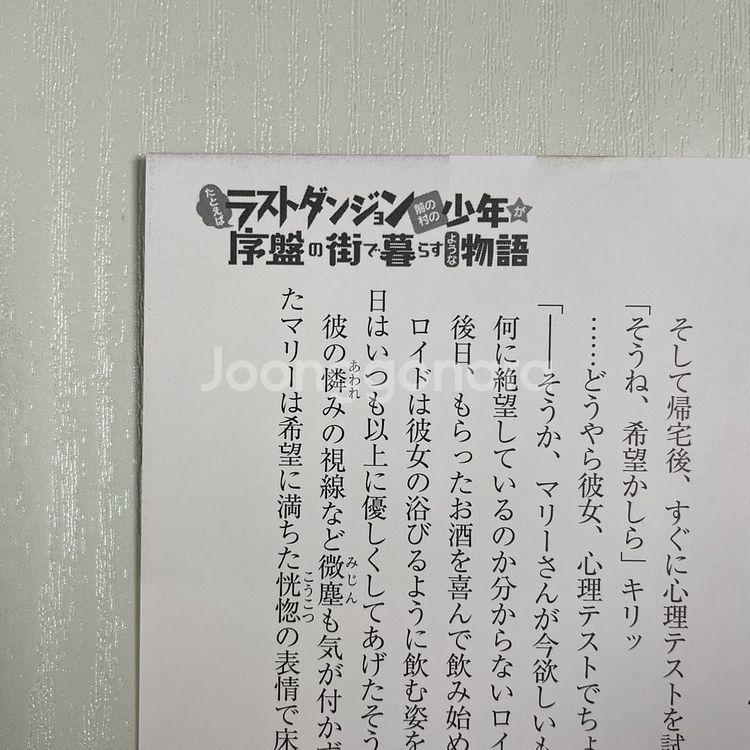 たとえばラストダンジョン前の村の少年が
序盤の街で暮らすような物語
そして帰宅後、すぐに心理テストを試
「そうね、希望かしら」キリッ
……どうやら彼女、心理テストでちょ
「――そうか、マリーさんが今欲しいも
何に絶望しているのか分からないロイ
後日、もらったお酒を喜んで飲み始め
ロイドは彼女の浴びるように飲む姿を
日はいつも以上に優しくしてあげたそう
彼の憐みの視線など微塵も気が付かず
たマリーは希望に満ちた恍惚の表情で床
あわれ
みじん
こうこつ
Joonggonara